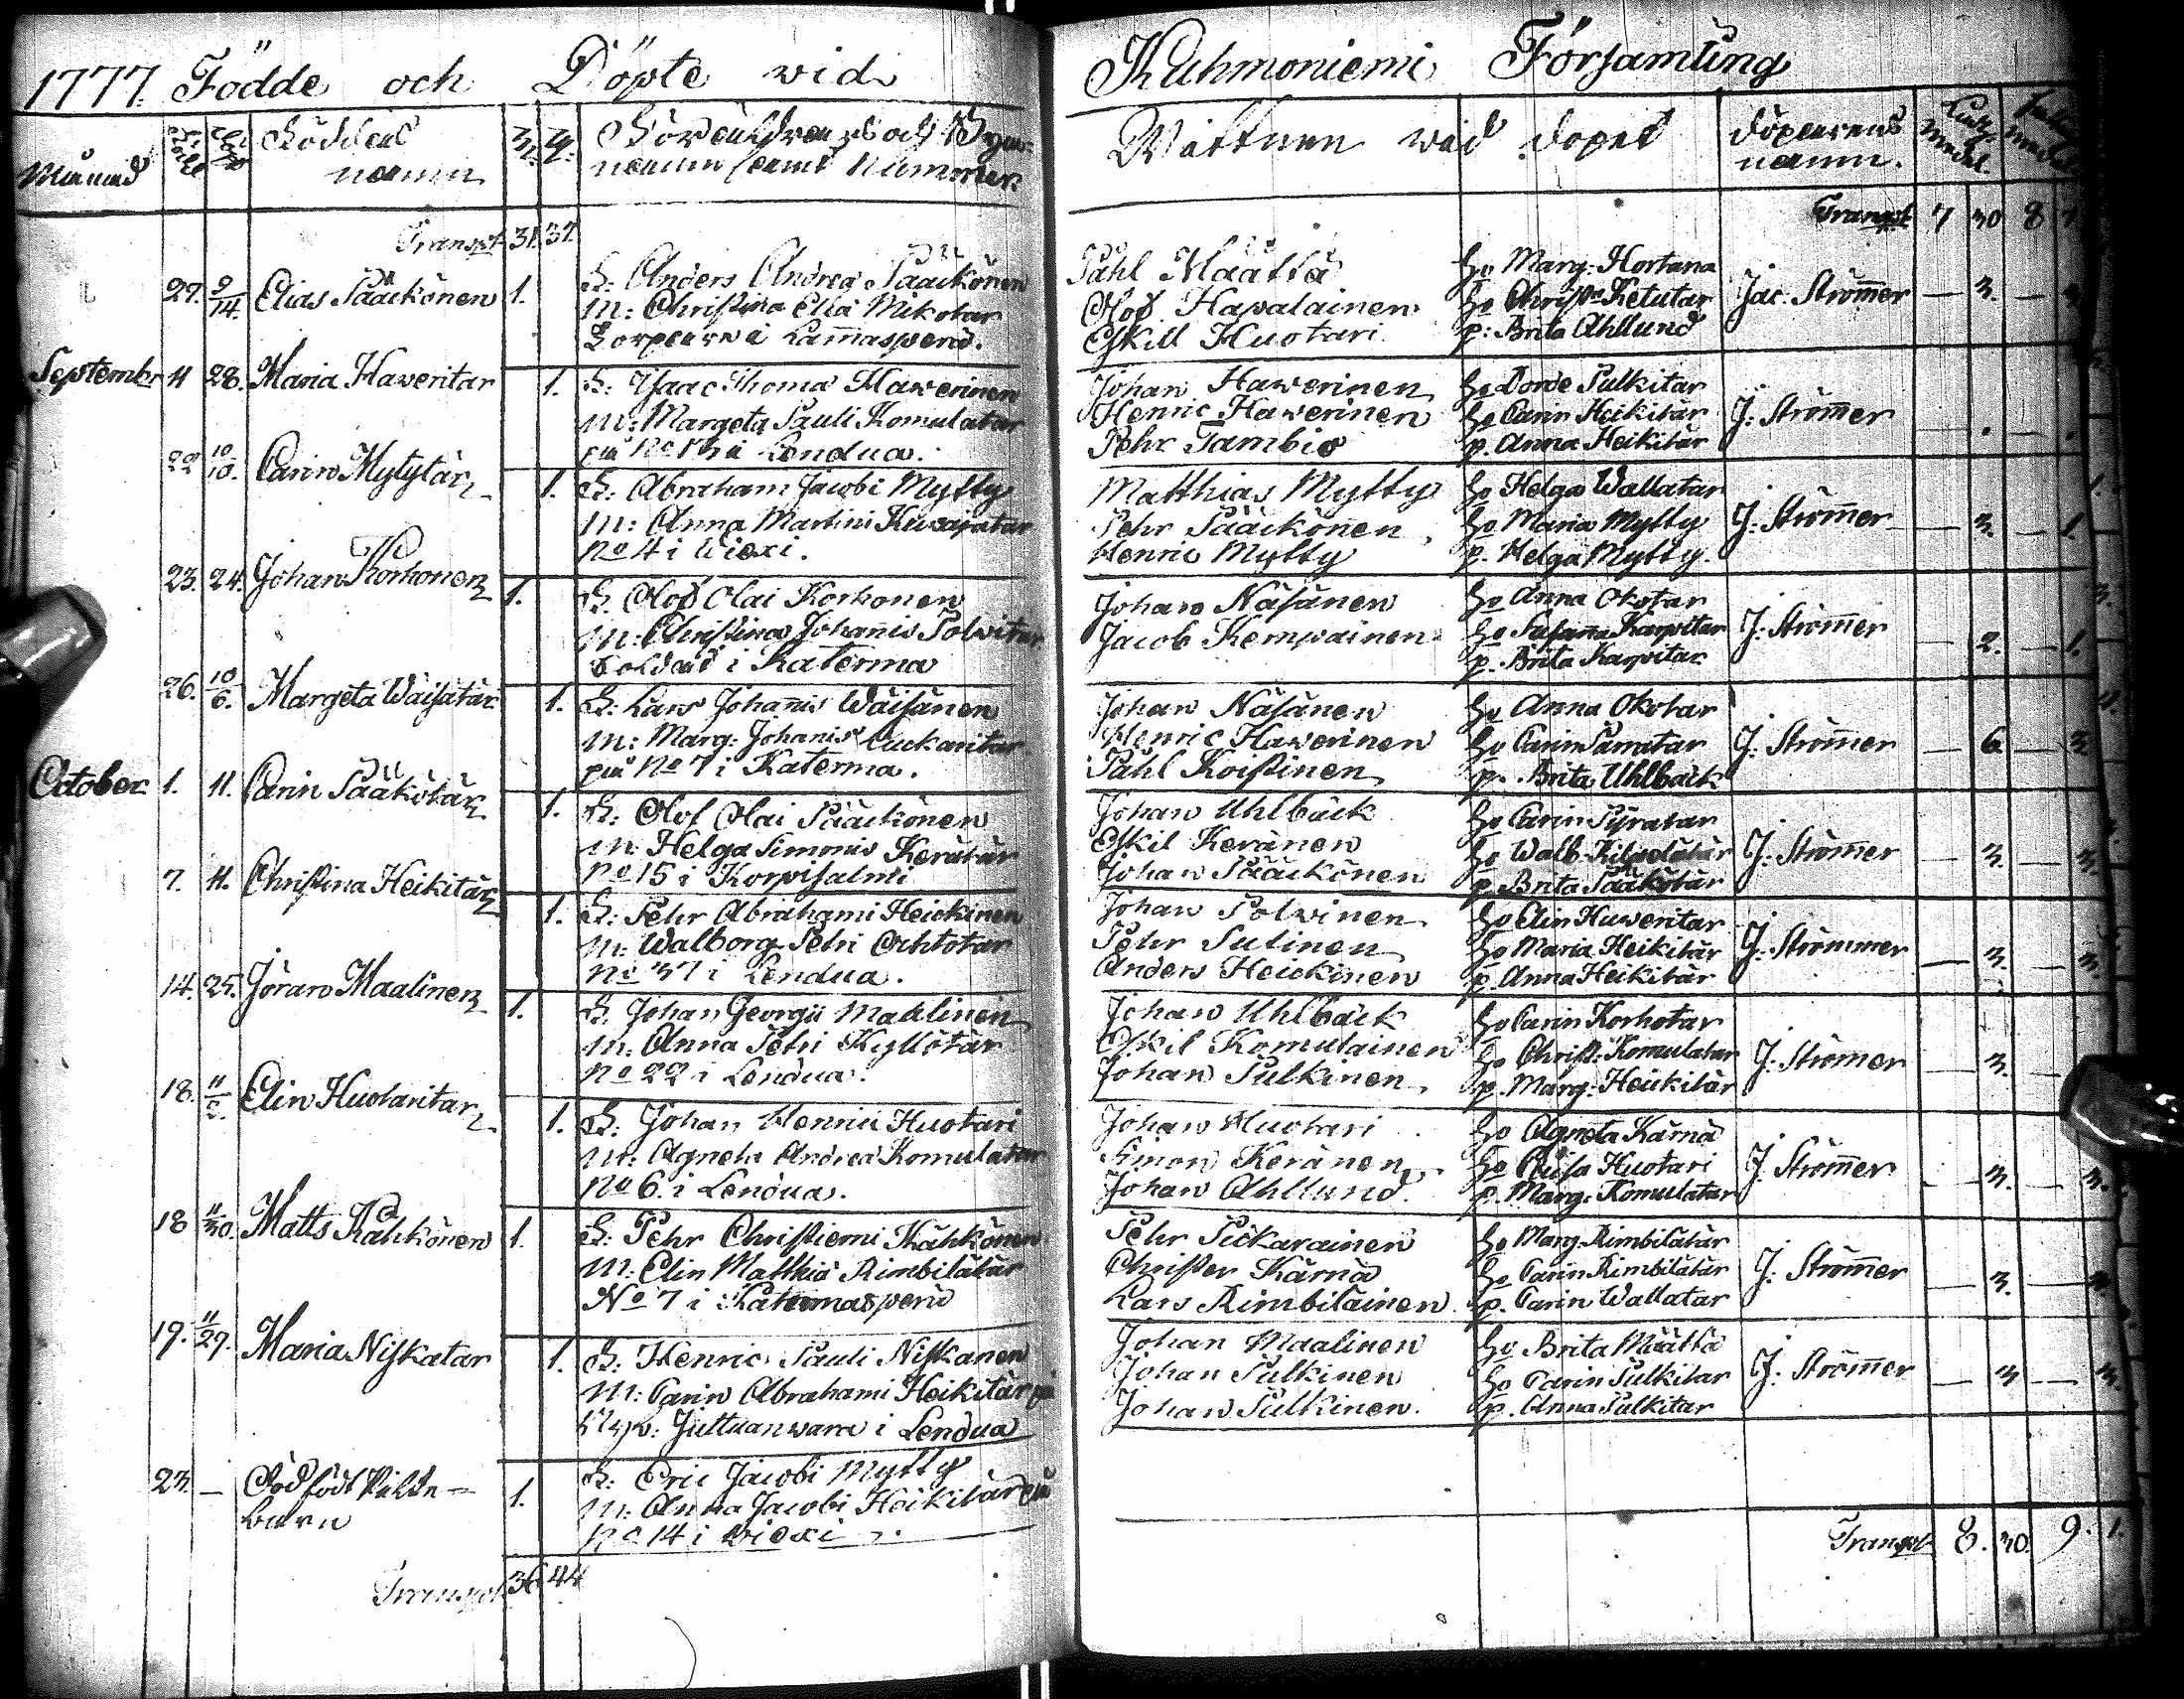 1777. Födde och Döpte wid Kuhmoniemi Församling
Månad
namn
namn samt Nummer
Wittnen wid dopet
döparens namn.
Transpt 31. 37.
Transpt 7 30 8
27. 9/14. Elias Pääckönen 1.
F: Anders Andreæ Pääckönen
M: Christina Eliæ Mikotar
Torpare i Lam̃asperä.
Påhl Määttä
Olof Hapalainen
Eskill Huotari
ho Marg: Hortana
ho Christ: Ketutar
p: Brita Ahllund
Jac: Ström̃er — 3. —
September 11 28. Maria Haveritar 1.
F: Isaac Thomæ Hawerinen
M: Margeta Pauli Komulatar
på No 13 i Lendua.
Johan Hawerinen
Henric Hawerinen
Pehr Tambio
ho Dorde Pulkitar
ho Carin Heikitär
p. Anna Heikitär
J: Ström̃er
22 10/10. Carin Mytytär 1.
F: Abraham Jacobi Mytty
M: Anna Martini
No 4 i Wiexi.
Matthias Mytty
Pehr Pääckönen
Henric Mytty
ho Helga Wallatar
ho Maria Mytty
p. Helga Mytty.
J: Ström̃er — 3. — 1.
23. 24. Johan Korhonen 1.
F. Olof Olai Korhonen
M: Christina Johannis Polvitar
Soldat i Katerma
Johan Näsänen
Jacob Kempainen
ho Anna Okotar
ho Susanna Karpitar
p. Brita Karpitar
J: Ström̃er — 2. — 1.
26. 10/6. Margeta Wäisätär 1.
F: Lars Johannis Wäisänen
M: Marg: Johannis
på No 7 i Katerma.
Johan Näsänen
Henric Hawerinen
Påhl Koistinen
ho Anna Okotar
ho Carin
p. Brita Uhlbäck
J: Ström̃er — 6 —
October 1. 11. Carin Pääkötär 1.
F: Olof Olai Pääckönen
M: Helga Simonis Kerätär
No 15 i Korpisalmi
Johan Uhlbäck
Eskil Keränen
Johan Pääckönen
ho Carin
ho Walb. Kilpelätär
p Brita Pääkötär
J: Ström̃er — 3. — 3.
7. 11. Christina Heikitär 1.
F: Pehr Abrahami Heickinen
M: Walborg Petri Ochtotar
No 37 i Lendua.
Johan Polvinen
Pehr Sutinen
Anders Heickinen
ho Elin Haweritar
ho Maria Heikitär
p. Anna Heikitär
J: Strömmer — 3. — 3.
14. 25. Jöran Maalinen 1.
F. Johan Georgii Maalinen
M: Anna Petri Kyllötär
No 22 i Lendua.
Johan Uhlbäck
Eskil Komulainen
Johan Pulkinen
ho Carin Korhotar
ho Christ: Komulatar
p. Marg: Heickitär
J: Strömer — 3. —
18. Elin Huotaritar 1.
F: Johan Henrici Huotari
M: Agneta Andreæ Komulatar
No 6. i Lendua.
Johan Huotari
Simon Keränen
Johan Ahllund.
ho Agneta Kärnä
ho Huotari
p. Marg: Komulatar
J: Ström̃er — 3. — 3.
18 11/30. Matts Kähkönen 1.
F: Pehr Christierni Kähkönen
M: Elin Matthiæ Rimbilätär
No 7 i Katermasperä
Pehr Pickarainen
Christer Kärnä
Lars Rimbiläinen
ho Marg. Rimbilätär
ho Carin Rimbilätär
p. Carin Wallatar
J: Ström̃er — 3. —
19. 11/27. Maria Niskatar 1.
F: Henric Pauli Niskanen
M: Carin Abrahami Heikitär på
Jultuanwara i Lendua
Johan Maalinen
Johan Pulkinen
Johan Pulkinen.
ho Brita Määttä
ho Carin Pulkitar
p. Anna Pulkitar
J: Ström̃er — 3 — 3.
23. — Dödfödt
barn 1.
F: Eric Jacobi Mytty
M: Anna Jacobi Heikitär på
No 14 i Wiexi
Transpt 36 44
Transpt 8. 30. 9. 1.